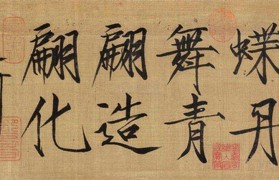 蝶丹
舞青
翩造
翩化